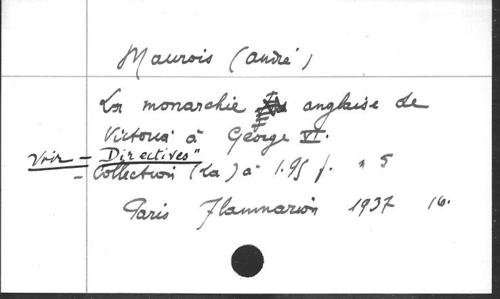 Maurois (André)
La monarchie anglaise de
Victoria à George VI.
Voir - Directives"
- Collection (La) à 1.95 f. n 5
Paris Flammarion 1937 16.